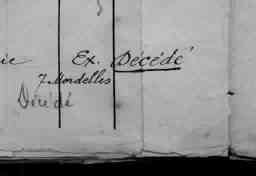 ie Ex. Décédé
7 Mordelles
Décédé